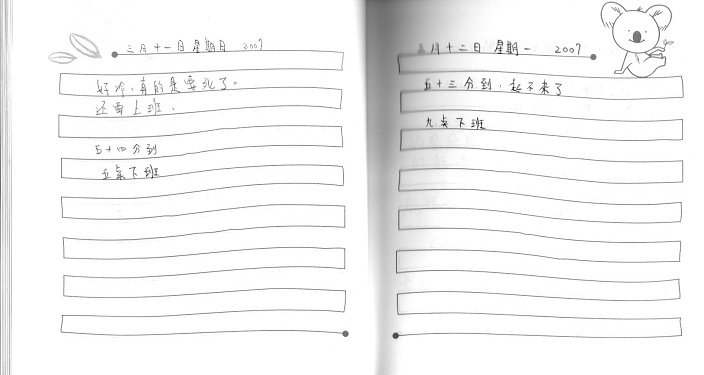 三月十一日 星期日 2007
好冷,真的是要死了。
还要上班、
五十四分到
五点下班
三月十二日 星期一 2007
五十三分到,起不来了
九点下班